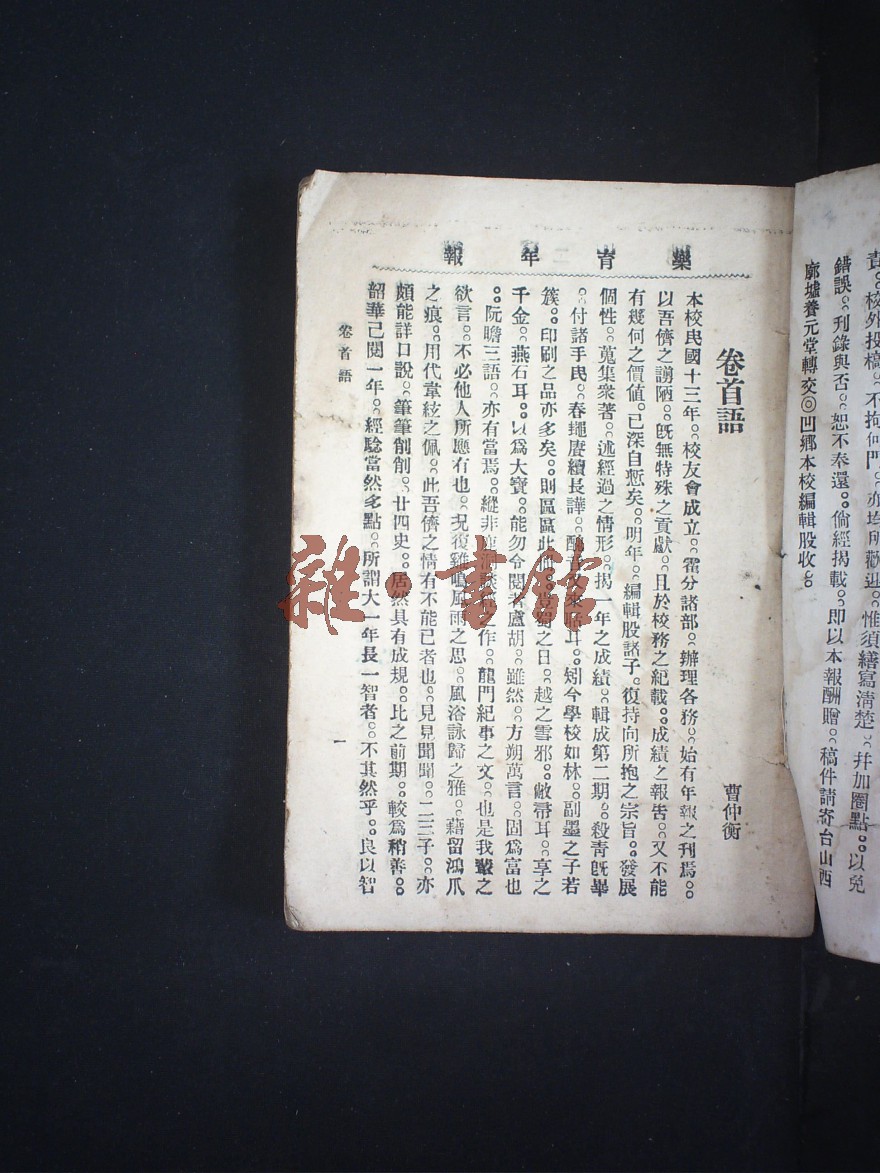 責。校外投稿。不拘何門。亦均所歡迎。惟須繕寫清楚。幷加圈點。以免
錯誤。刊錄與否。恕不奉還。倘經揭載。即以本報酬贈。稿件請寄台山西
廓墟養元堂轉交◎凹鄉本校編輯股收。
樂育年報
卷首語
曹仲衡
本校民國十三年。校友會成立。霍分諸部。辦理各務。始有年報之刊焉。
以吾儕之譾陋。旣無特殊之貢獻。且於校務之紀載。成績之報吿。又不能
有幾何之價値。已深自慙矣。明年。編輯股諸子。復持向所抱之宗旨。發展
個性。蒐集衆著。述經過之情形。揭一年之成績。輯成第二期。殺靑旣畢
。付諸手民。春蠅賡續長譁。醜 又來聒耳。矧今學校如林。副墨之子若
簇。印刷之品亦多矣。則區區此冊。豈蜀之日。越之雪邪。敝帚耳。享之
千金。燕石耳。以爲大寶。能勿令閱者盧胡。雖然。方朔萬言。固爲富也
。阮瞻三語。亦有當焉。縱非 之作。龍門紀事之文。也是我輩之
欲言。不必他人所應有也。況復雞鳴風雨之思。風浴詠歸之雅。藉留鴻爪
之痕。用代韋絃之佩。此吾儕之情有不能已者也。見見聞聞。二三子。亦
頗能詳口說。筆筆削削。廿四史。居然具有成規。比之前期。較爲稍善。
韶華已閱一年。經騐當然多點。所謂大一年長一智者。不其然乎。良以智
卷首語
一
雜·書館